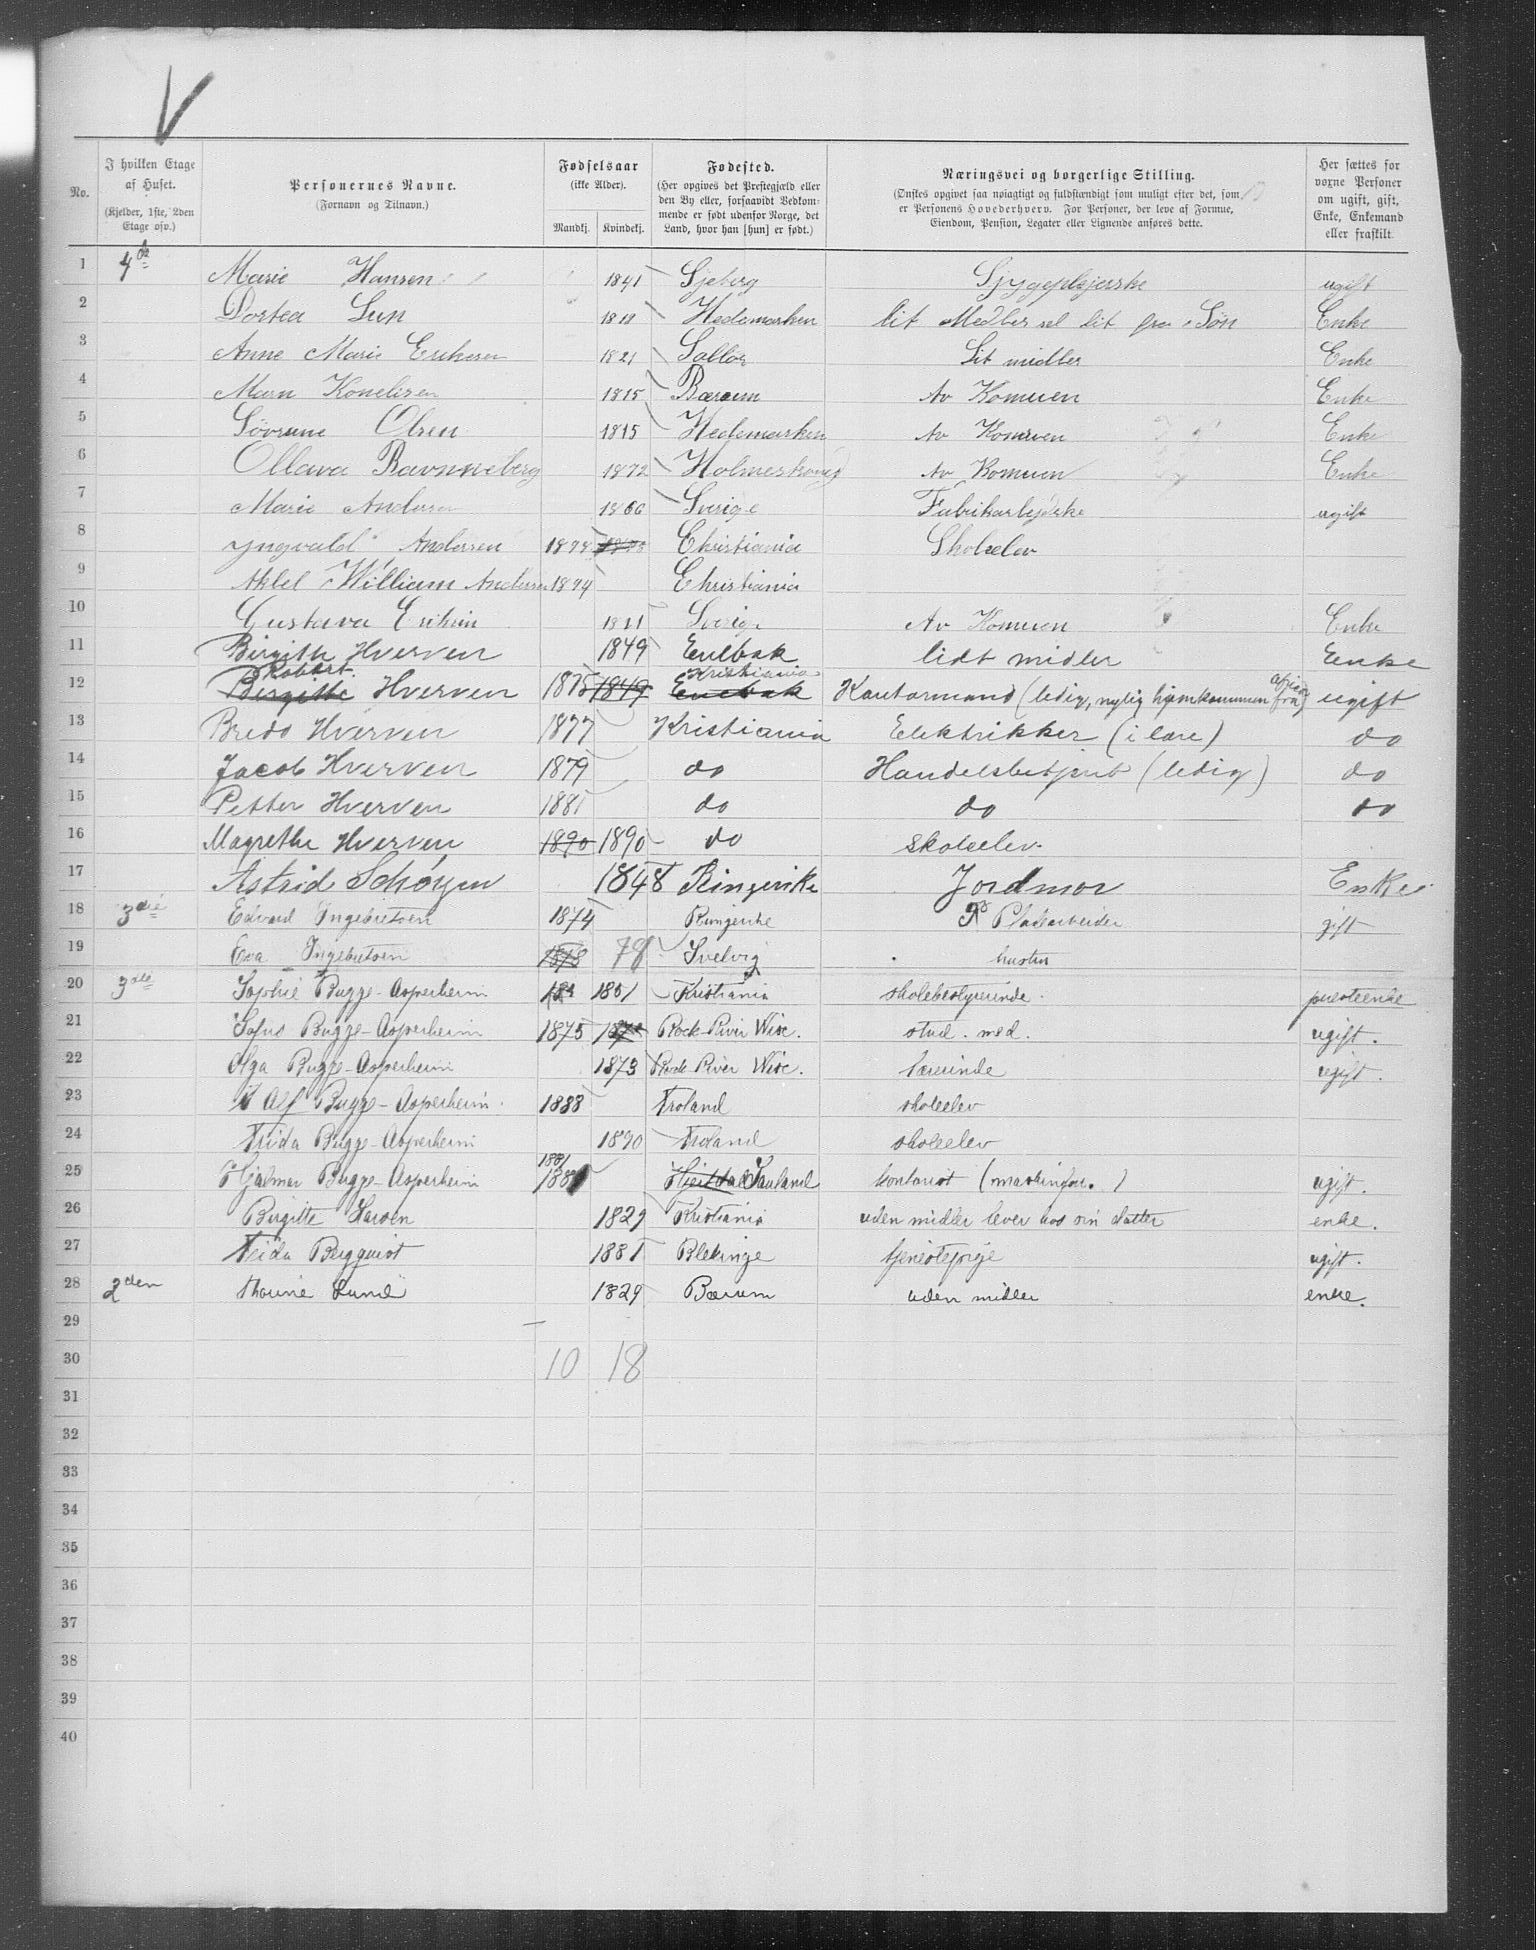 V
No.
I hvilken Etage af Huset. (Kjelder, 1ste, 2den Etage osv.)
Personernes Navne. (Fornavn og Tilnavn.)
Fødselsaar (ikke Alder). Mandkj. Kvindekj.
Fødested. (Her opgives det Prestegjæld eller den By eller, forsaavidt Vedkommende er født udenfor Norge, det Land, hvor han [hun] er født.)
Næringsvei og borgerlige Stilling. (Ønskes opgivet saa nøiagtigt og fuldstændigt som muligt efter det, som er Personens Hovederhverv. For Personer, der leve af Formue, Eiendom, Pension, Legater eller Lignende anføres dette.
Her sættes for voxne Personer om ugift, gift, Enke, Enkemand eller fraskilt.
1 4de Marie Hansen 1841 Sjeberg Sygeplejerske ugift
2 Dortea Lun 1818 Hedemarken lit Medler vel lit fra Søn Enke
3 Anne Marie Eriksen 1821 Solløe Lit midler Enke
4 Marn Konelisen 1815 Bæraum Av Komuen Enke
5 Sövrune Olsen 1815 Hedemarken Av Komuen Enke
6 Ollava Ravnneberg 1872 Av Komuen Enke
7 Marie Andersen 1866 Sverige Fabrikarbejdske ugift
8 Yngvald Andersen 1898 Christiania Skoleelev
9 William Andersen 1894 Christiania
10 Gustava Eriksen 1821 Sverige Av Komuen Enke
11 Birgith Hverven 1849 Enebak lidt midler Eenke
12 Birgitthe Robbert Hverven 1875 1849 Enebak Kristiania Kantormand (ledig, nylig hjemkommen fra Africa) ugift
13 Bredo Hverven 1877 Kristiania Elektrikker (i lære) do
14 Jacob Hverven 1879 do Handelsbetjent (ledig) do
15 Petter Hverven 1881 do do do
16 Magrethe Hverven 1890 1890 do skoleelev.
17 Astrid Schøyen 1848 Ringerike Jordmor Enke.
18 3die Edvard Ingebretsen 1874 Ringerike Pladearbeider gift
19 Eva Ingebretsen 1878 78 Svelvig hustru
20 3die Sophie Bugge-Asperheim 1851 Kristiania skolebestyrerinde. presteenke
21 Sofus Bugge-Asperheim 1875 Rock-River Wisc. stud. med. ugift.
22 Olga Bugge-Asperheim 1873 Rock River Wisc. lærerinde ugift.
23 Alf Bugge-Asperheim. 1888 Froland skoleelev
24 Frida Bugge-Asperheim 1890 Froland skoleelev
25 Hjalmar Bugge-Asperheim 1881 Hjertdal Sauland kontorist (maskinfor.) ugift.
26 Birgitte Larsen 1829 Kristiania uden midler lever hos sin datter enke.
27 Frida Bergquist 1881 Blekinge tjenestepige ugift.
28 2den Thorine Lund 1829 Bærum uden midler enke.
29
30 10 18
31
32
33
34
35
36
37
38
39
40